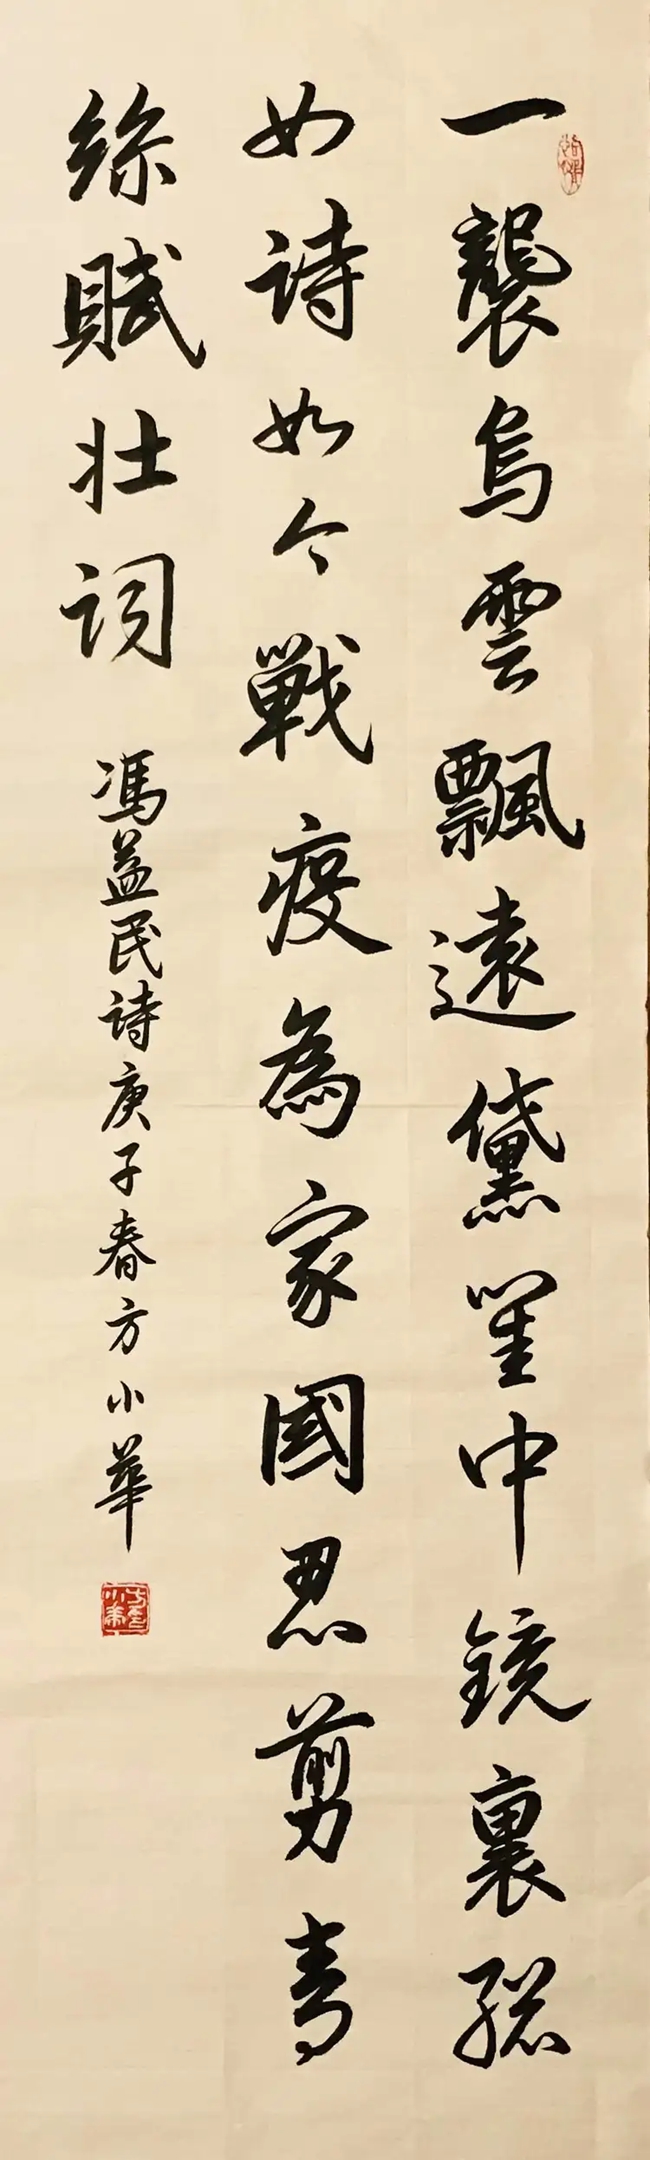 一襲烏雲飄遠黛中鏡裏總
如詩如今戰疫為家國忍剪青
絲賦壯詞 馮益民詩庚子春方小華